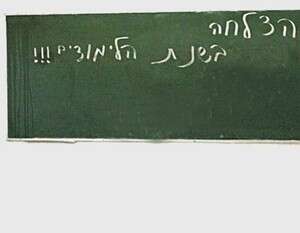 הצלחה
בשנת הלימודים!!!